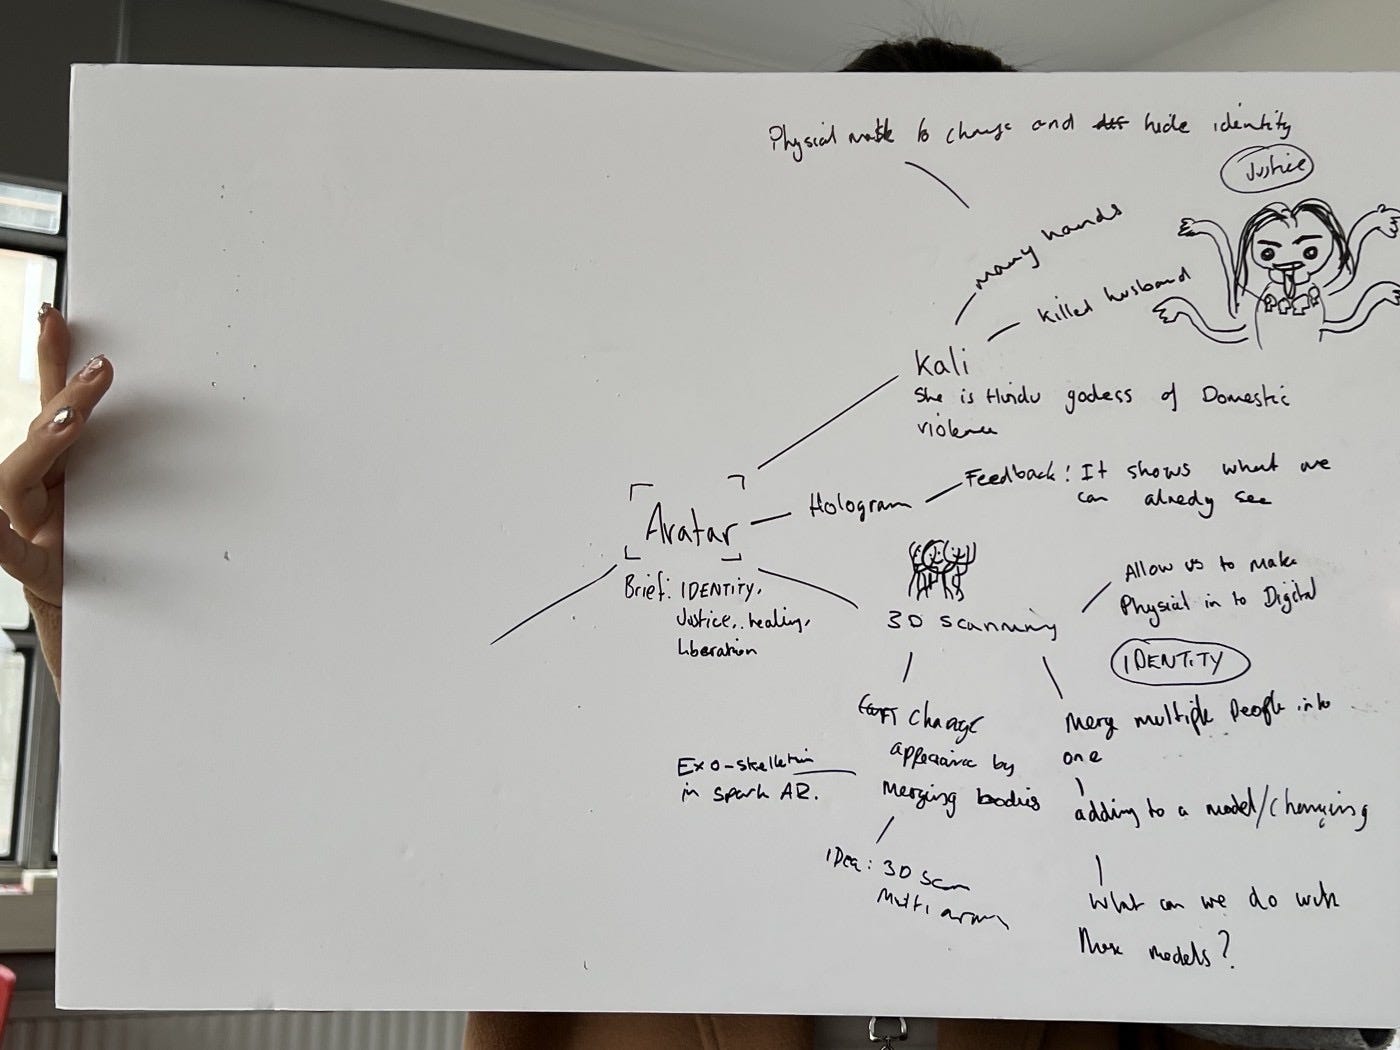 Physical mask to change and hide identity
Justice
many hands
killed husband
Kali
She is Hindu godess of Domestic
violence
Feedback! It shows what we
can already see
Hologram
Avatar
Brief: IDENTITY,
Justice, healing,
liberation
3D scanning
Allow us to make
Physical in to Digital
IDENTITY
change
appearance by
merging bodies
Merge multiple People into
one
adding to a model/changing
What can we do with
these models?
Exo-skelletin
in spark AR.
IDea: 3D scan
multi arms